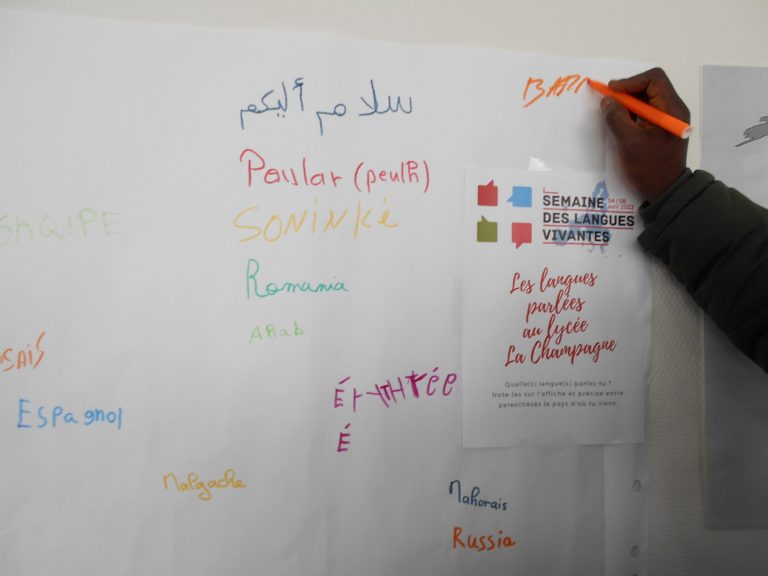 سلام أليكم
Poular (peulh)
SONINKÉ
SHQIPE
Romania
ARab
SAIS
Espagnol
É
Malgache
Mahorais
Russia
SEMAINE
DES LANGUES
VIVANTES
04 | 08
avril 2022
Les langues
parlées
au lycée
La Champagne
Quelle(s) langue(s) parles-tu ?
Note-les sur l'affiche et précise entre
parenthèses le pays d'où tu viens.